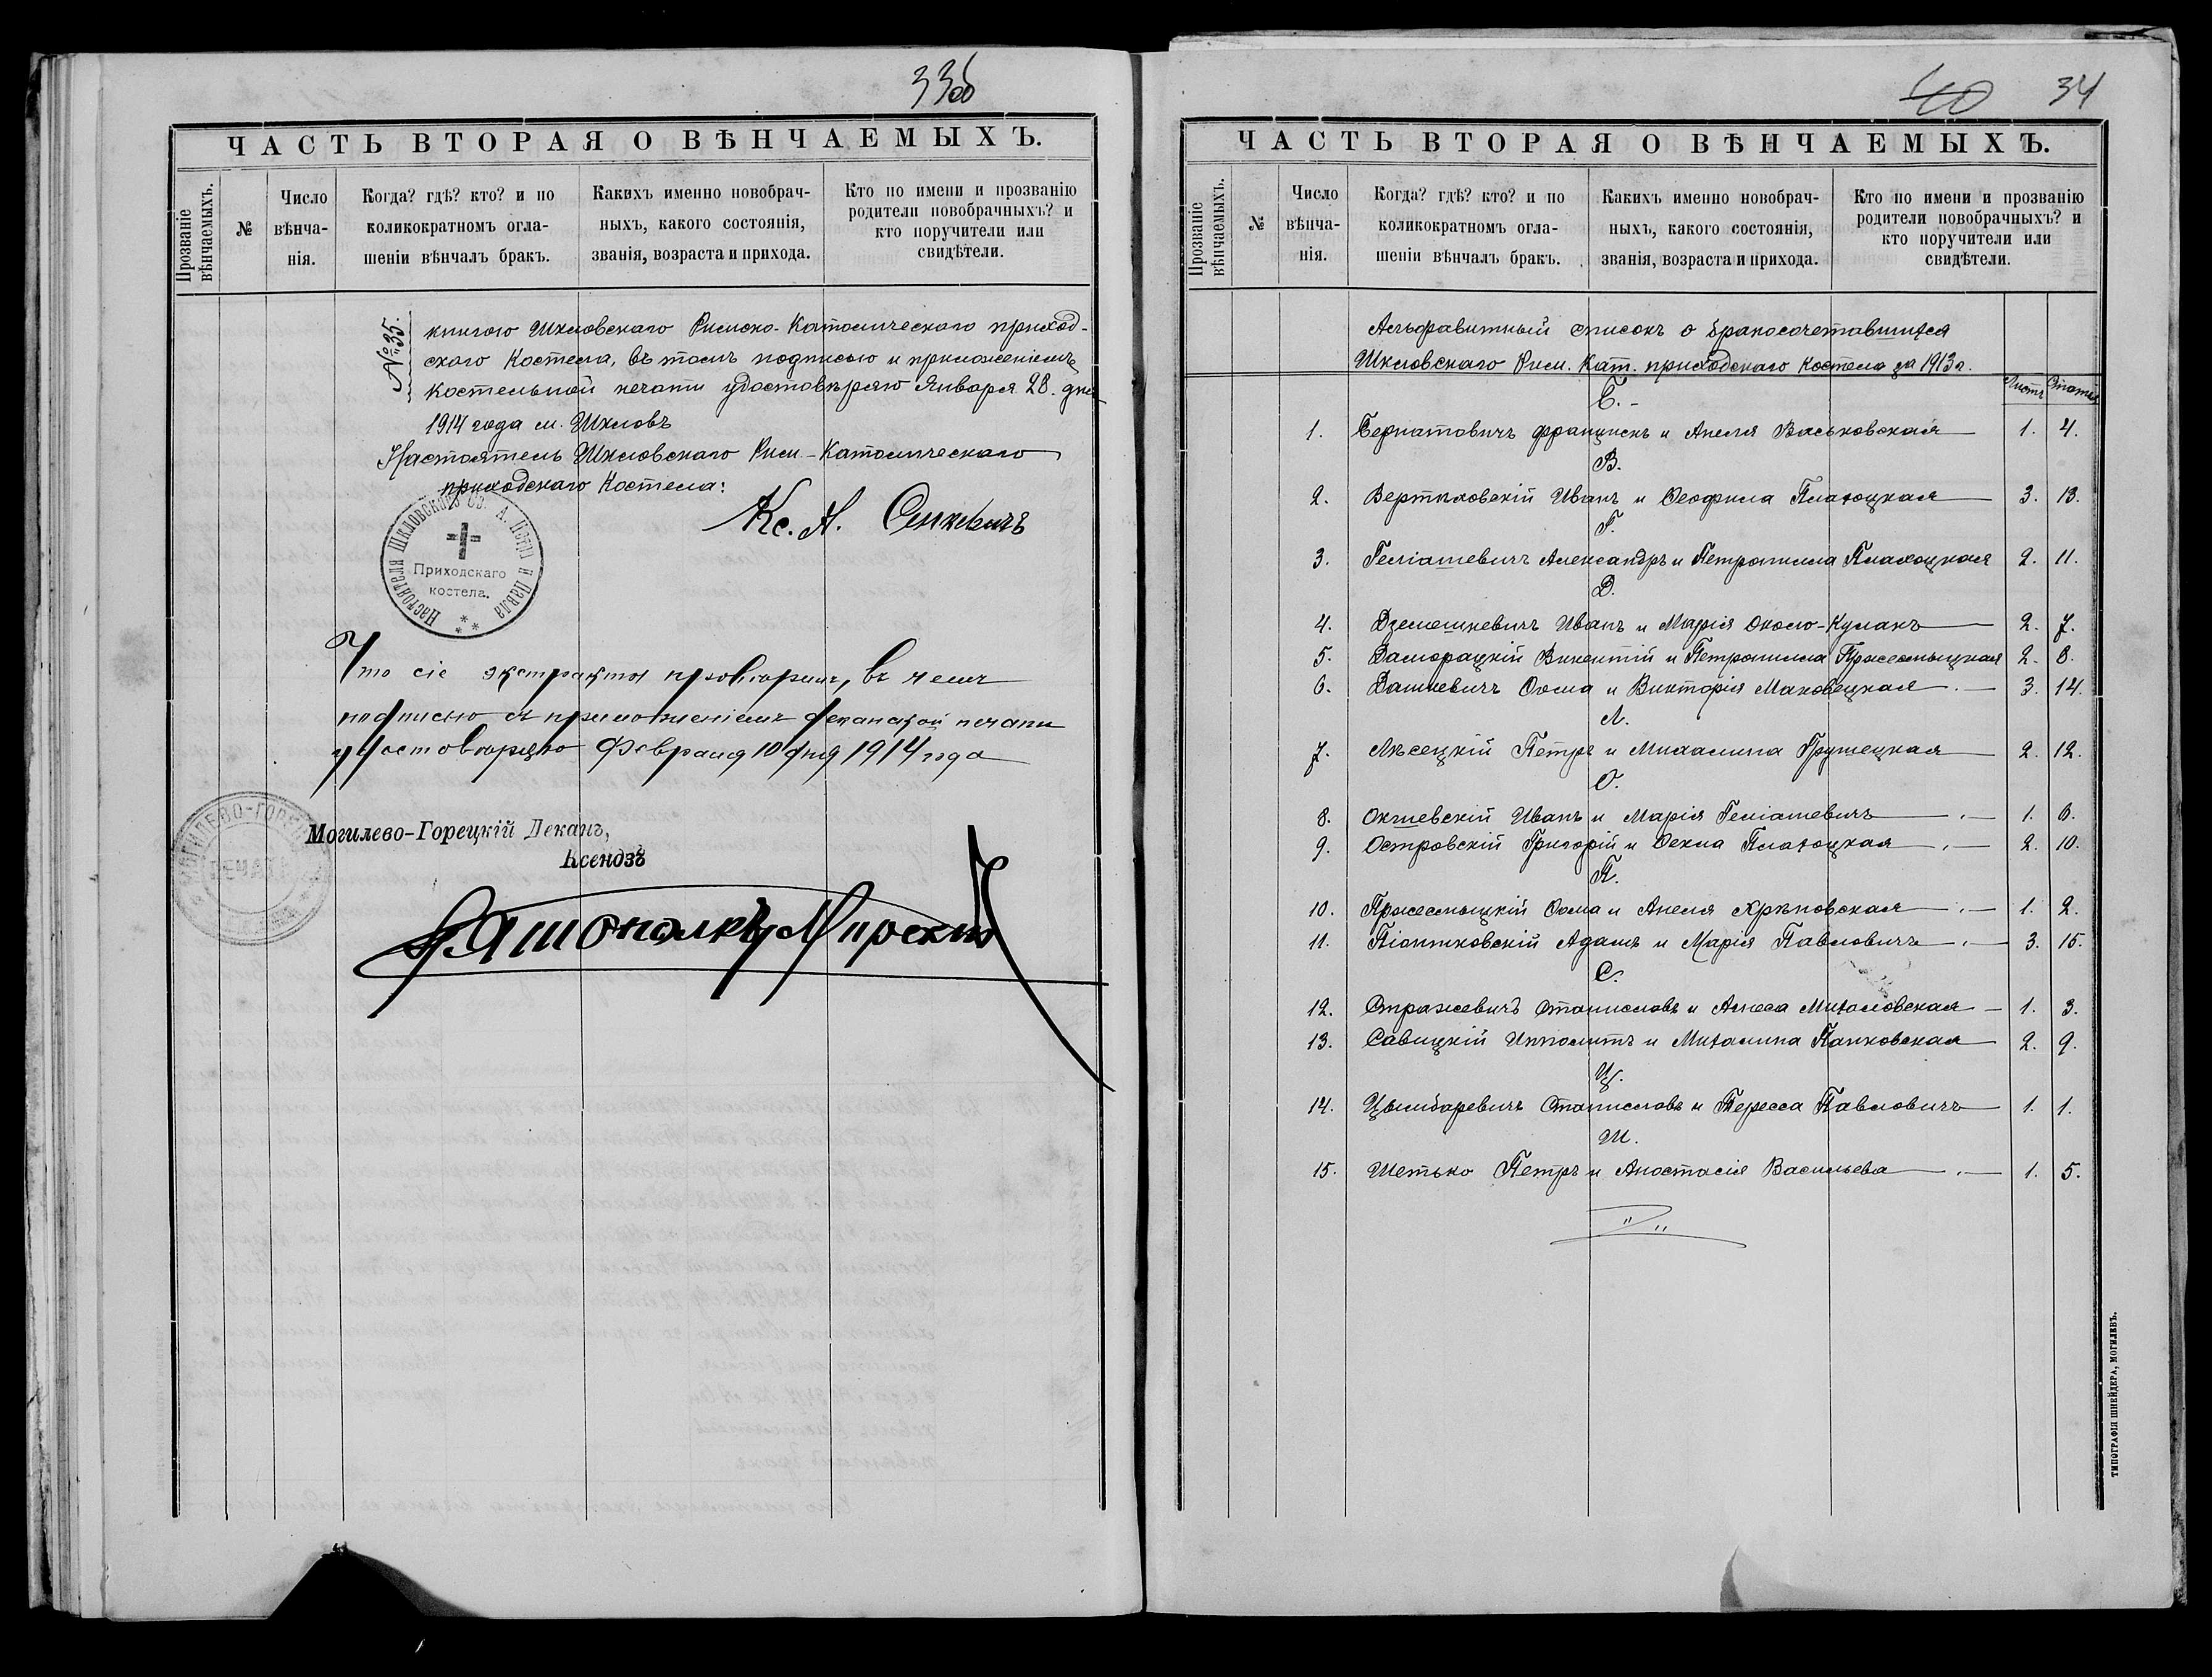 33об
ЧАСТЬ ВТОРАЯ О ВѢНЧАЕМЫХЪ.
Прозваніе вѣнчаемыхъ.
№
Число вѣнча-нія.
Когда? гдѣ? кто? и по коликократномъ огла-шеніи вѣнчалъ бракъ.
Какихъ именно новобрач-ныхъ, какого состоянія, званія, возраста и прихода.
Кто по имени и прозванію родители новобрачныхъ? и кто поручители или свидѣтели.
№ 35.
книгою Шкловскаго Римско-Католическаго приход-
скаго Костела, въ томъ подписью и приложеніемъ
костельной печати удостовѣряю Января 28. дня
1914 года м. Шкловъ
Настоятель Шкловскаго Рим.-Католическаго
приходскаго Костела:
Кс. А. Сенкевичъ
Настоятеля Шкловскаго Св. А. Петра и Павла
Приходскаго
костела.
Что сіе экстрактъ провѣрилъ, въ чемъ
подписью съ приложеніемъ деканской печати
удостовѣряю Февраля 10 дня 1914 года
Могилево-Горецкій Деканъ,
Ксендзъ
Мирскій
40 34
ЧАСТЬ ВТОРАЯ О ВѢНЧАЕМЫХЪ.
Прозваніе вѣнчаемыхъ.
№
Число вѣнча-нія.
Когда? гдѣ? кто? и по коликократномъ огла-шеніи вѣнчалъ бракъ.
Какихъ именно новобрач-ныхъ, какого состоянія, званія, возраста и прихода.
Кто по имени и прозванію родители новобрачныхъ? и кто поручители или свидѣтели.
Альфавитный списокъ о бракосочетавшихся
Шкловскаго Рим. Кат. приходскаго Костела за 1913 г.
Листъ Статья
Б. -
1. Бернатовичъ Францискъ и Анеля Васьковская 1. 4.
В.
2. Вертыховскій Иванъ и Ѳеофила Плахоцкая 3. 13.
Г.
3. Геліашевичъ Александръ и Петронилла Плахоцкая 2. 11.
Д.
4. Дземешкевичъ Иванъ и Марія Около-Кулакъ 2. 7.
5. Даморацкій Викентій и Петронилла Пржесмыцкая 2. 8.
6. Дашкевичъ Ѳома и Викторія Маковецкая 3. 14.
Л.
7. Лѣсецкій Петръ и Михалина Грушецкая 2. 12.
О.
8. Окшевскій Иванъ и Марія Геліашевичъ 1. 6.
9. Островскій Григорій и Ѳекла Плахоцкая 2. 10.
П.
10. Пржесмыцкій Ѳома и Анеля Крѣповская 1. 2.
11. Піонтковскій Адамъ и Марія Павловичъ 3. 15.
С.
12. Стражевичъ Станиславъ и Агнеса Михаловская 1. 3.
13. Савицкій Ипполитъ и Михалина Панковская 2. 9.
Ц.
14. Цымбаревичъ Станиславъ и Тересса Павловичъ 1. 1.
Ш.
15. Шетько Петръ и Анастасія Васильева 1. 5.
ТИПОГРАФІЯ ШНЕЙДЕРА, МОГИЛЕВЪ.